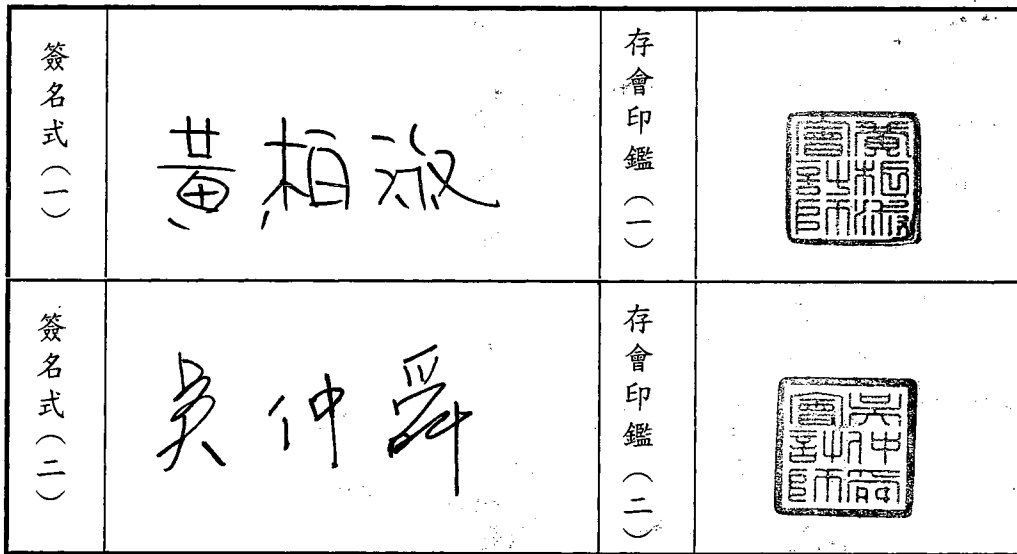 簽名式(一)
黃柏淑
存會印鑑(一)
黃柏淑會計師
簽名式(二)
吳仲舜
存會印鑑(二)
吳仲舜會計師